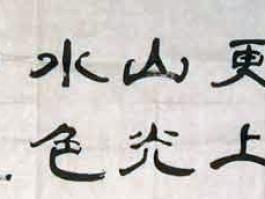 更上
山光
水色